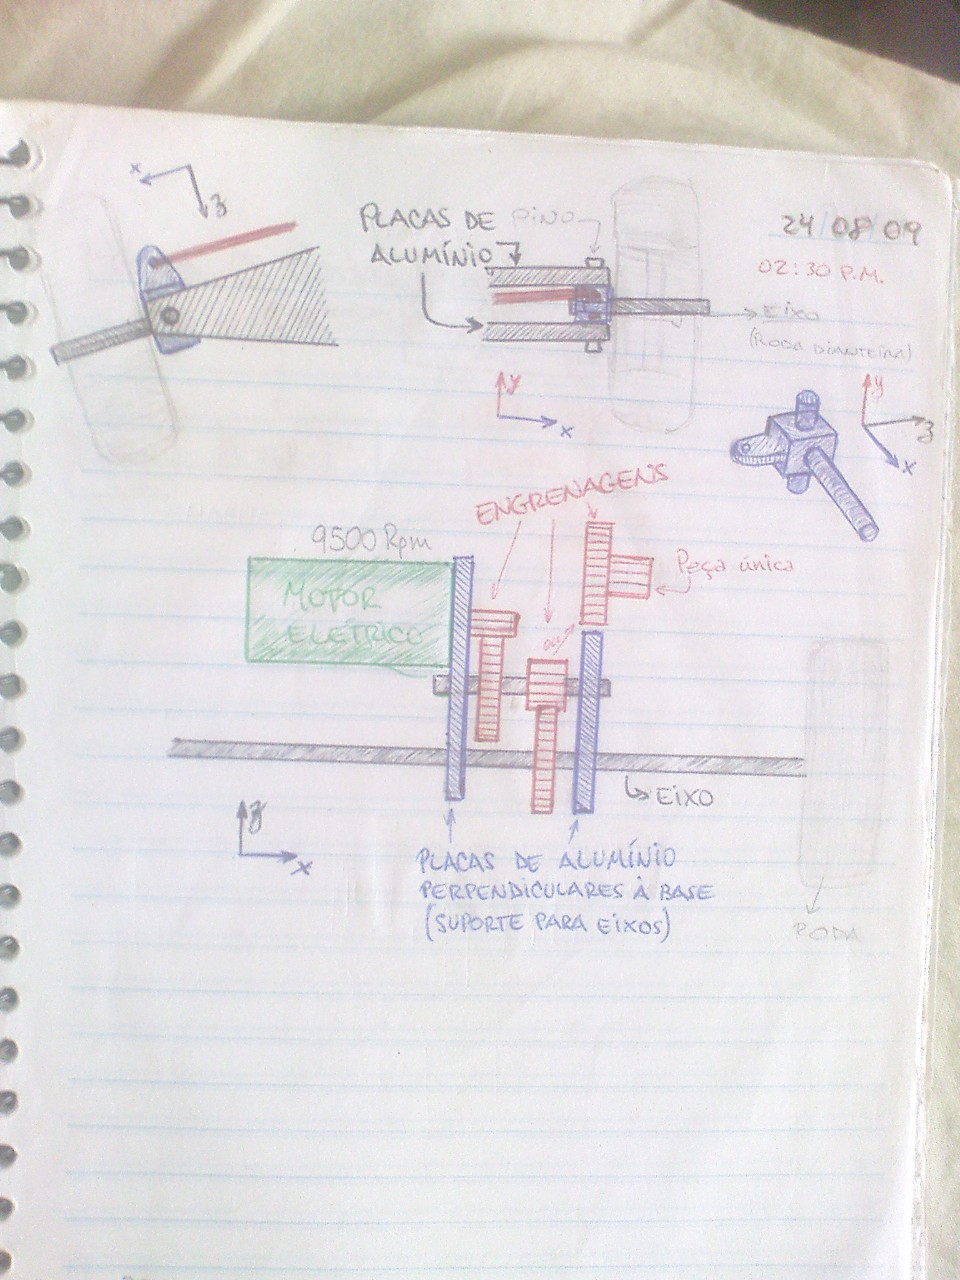 x
z
PLACAS DE
ALUMÍNIO
PINO
24/08/09
02:30 P.M.
EIXO
(RODA DIANTEIRA)
y
x
y
z
x
ENGRENAGENS
9500 Rpm
MOTOR
ELÉTRICO
Peça única
ou
EIXO
z
x
PLACAS DE ALUMÍNIO
PERPENDICULARES À BASE
(SUPORTE PARA EIXOS)
RODA